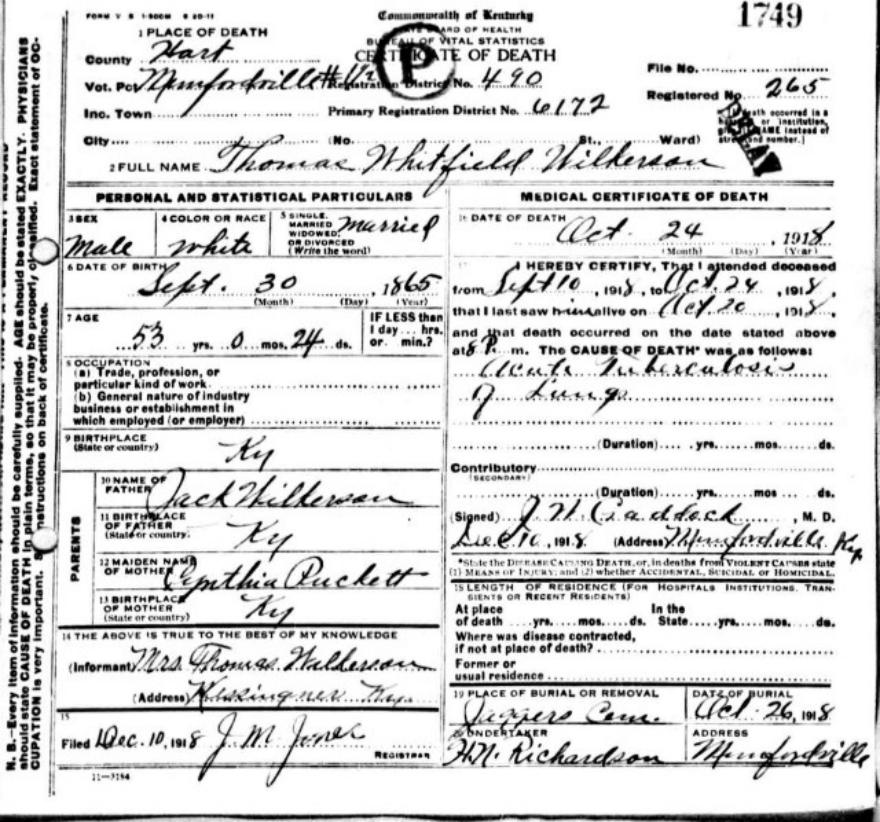 FORM V S 1-500M 8 20-11
Commonwealth of Kentucky
1749
BOARD OF HEALTH
BUREAU OF VITAL STATISTICS
CERTIFICATE OF DEATH
P
1 PLACE OF DEATH
County Hart
Vot. Pct Munfordville #1½ Registration District No. 490
File No.
Registered No. 265
Inc. Town Primary Registration District No. 6172
City (No. St., Ward)
death occurred in a
or institution,
NAME instead of
and number.]
2 FULL NAME Thomas Whitfield Wilkerson
PERSONAL AND STATISTICAL PARTICULARS
3 SEX
Male
4 COLOR OR RACE
White
5 SINGLE,
MARRIED
WIDOWED,
OR DIVORCED
(Write the word)
Married
6 DATE OF BIRTH
Sept. 30, 1865
(Month) (Day) (Year)
7 AGE
53 yrs. 0 mos. 24 ds.
IF LESS than
1 day... hrs.
or min.?
8 OCCUPATION
(a) Trade, profession, or
particular kind of work
(b) General nature of industry
business or establishment in
which employed (or employer)
9 BIRTHPLACE
(State or country)
Ky
PARENTS
10 NAME OF
FATHER
Jack Wilkerson
11 BIRTHPLACE
OF FATHER
(State or country)
Ky
12 MAIDEN NAME
OF MOTHER
Cynthia Puckett
13 BIRTHPLACE
OF MOTHER
(State or country)
Ky
14 THE ABOVE IS TRUE TO THE BEST OF MY KNOWLEDGE
(Informant) Mrs. Thomas Wilkerson
(Address) Ky.
15
Filed Dec. 10, 1918 J. M. Jones
REGISTRAR
11-3184
MEDICAL CERTIFICATE OF DEATH
16 DATE OF DEATH
Oct. 24, 1918
(Month) (Day) (Year)
17 I HEREBY CERTIFY, That I attended deceased
from Sept 10, 1918, to Oct. 24, 1918,
that I last saw him alive on Oct. 20, 1918,
and that death occurred on the date stated above
at 8 P. m. The CAUSE OF DEATH* was as follows:
Acute Tuberculosis
of Lungs
(Duration) yrs. mos. ds.
Contributory
(SECONDARY)
(Duration) yrs. mos ds.
(Signed) J. W. Caddock, M. D.
Dec 10, 1918 (Address) Munfordville Ky.
*State the DISEASE CAUSING DEATH, or, in deaths from VIOLENT CAUSES state
(1) MEANS OF INJURY; and (2) whether ACCIDENTAL, SUICIDAL or HOMICIDAL.
18 LENGTH OF RESIDENCE (FOR HOSPITALS INSTITUTIONS, TRAN-
SIENTS OR RECENT RESIDENTS)
At place
of death yrs. mos. ds.
In the
State yrs. mos. ds.
Where was disease contracted,
if not at place of death?
Former or
usual residence
19 PLACE OF BURIAL OR REMOVAL
Jaggers Cem.
DATE OF BURIAL
Oct. 26, 1918
20 UNDERTAKER
H. N. Richardson
ADDRESS
Munfordville
N. B.—Every item of information should be carefully supplied. AGE should be stated EXACTLY. PHYSICIANS
should state CAUSE OF DEATH in plain terms, so that it may be properly classified. Exact statement of OC-
CUPATION is very important. instructions on back of certificate.